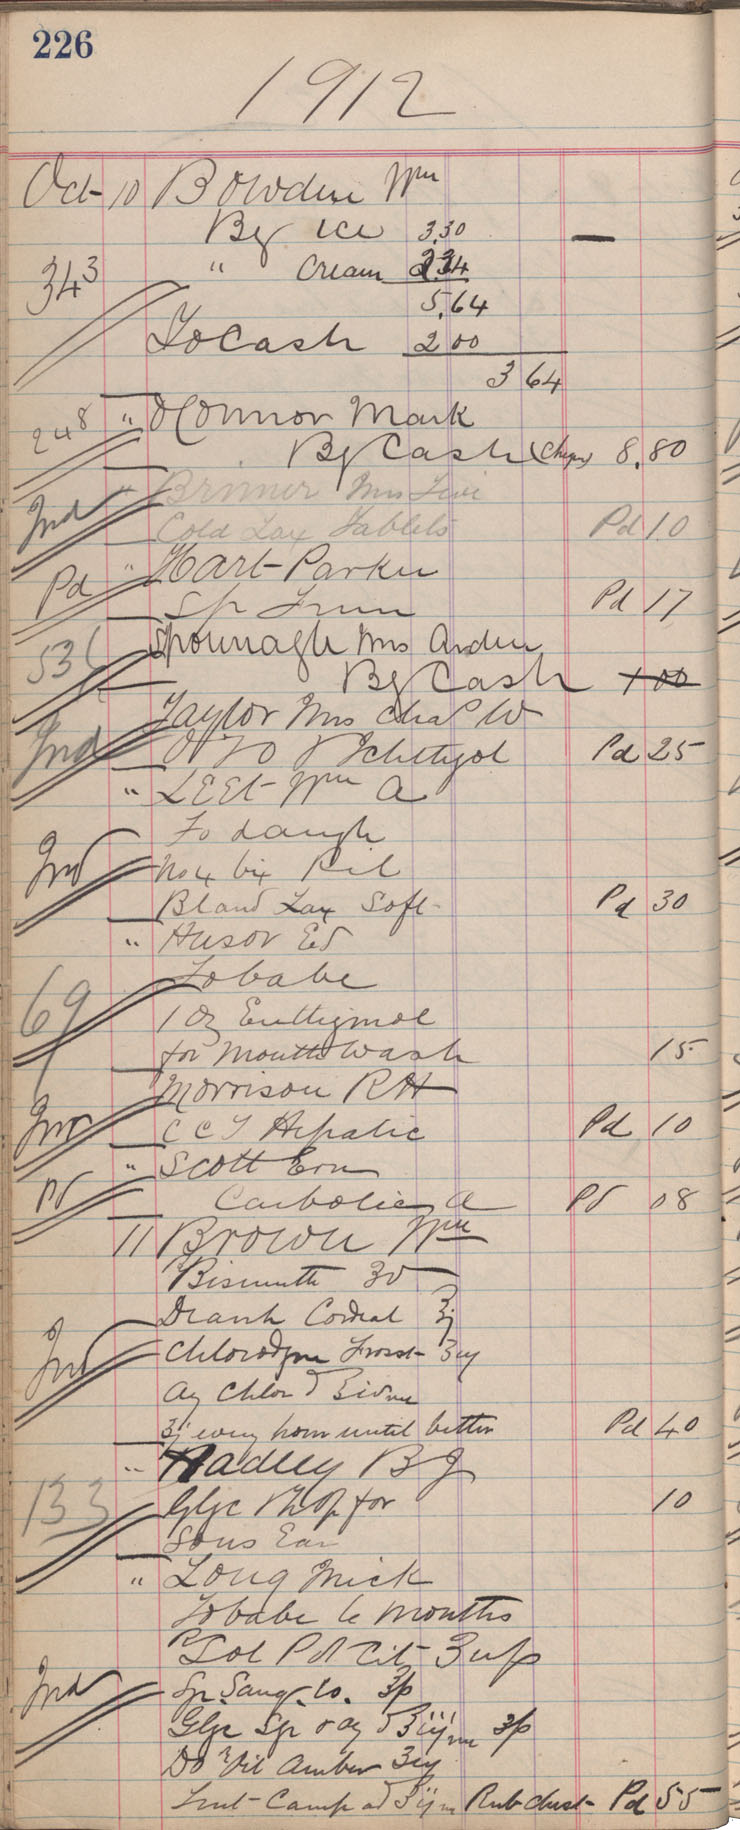 226
1912
Oct 10 Bowden Wm
By Ice 3.30 —
343 " Cream 2 34
5.64
To Cash 2 00
3 64
248 " O'Connor Mark
By Cash 8.80
Ind " Brimer Mrs
Cold Lax Tablets Pd 10
Pd " Hart Parker
Sp Pd 17
536 Spounagle Mrs Arden
By Cash 1 00
Taylor Mrs Chas W
Ind Ichthyol Pd 25
" LEEt Wm A
To daugh
Ind No 4
Bland Lax Soft Pd 30
" Husor Ed
69 To babe
1 Oz Euthymol
for Mouth Wash 15
Morrison RH
Ind C C T Hepatic Pd 10
" Scott Ern
Pd Carbolic A Pd 08
11 Brown Wm
Bismuth
Cordial
Ind Chlorodyne Frosst
Aq Chlor
every hour until better Pd 40
" Hadley B J
133 Glyc for 10
Sons Ear
" Long Mick
To babe 6 months
Sol Cit
Ind Sp. Co.
Glyc
Amber
Camp Rub chest Pd 55